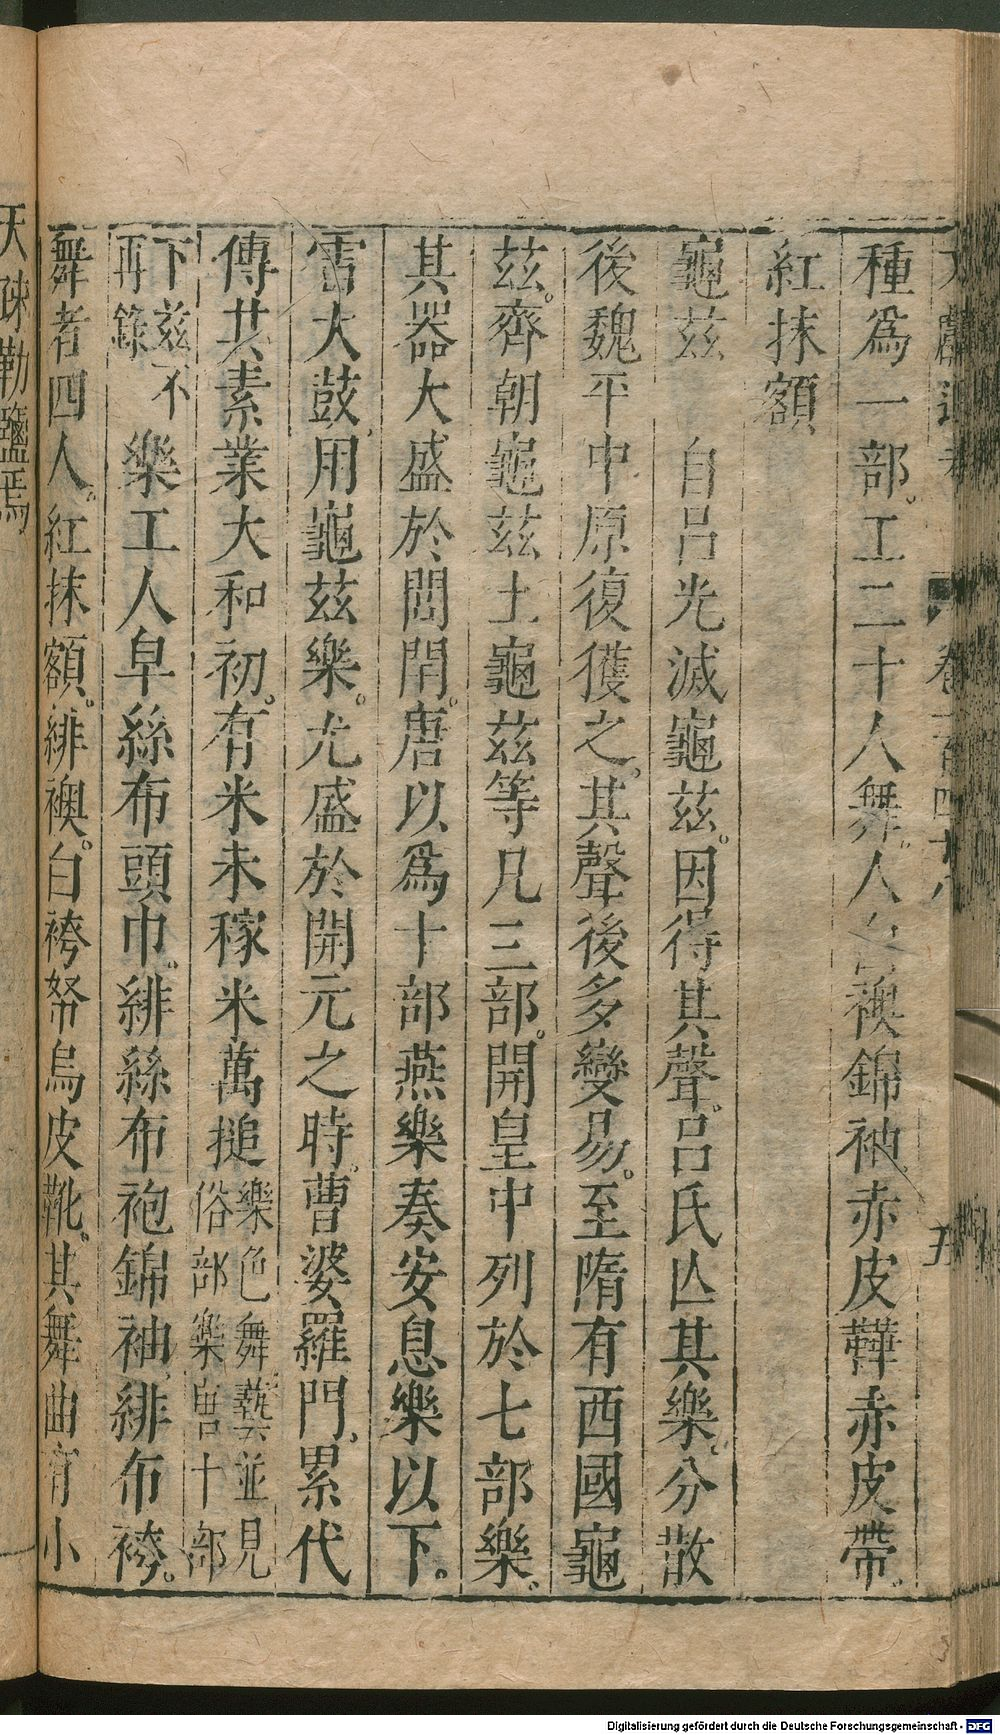 文獻通考 卷一百四十八 五
種爲一部。工二十人舞。人白襖錦袖。赤皮鞾赤皮帶。
紅抹額
龜茲 自呂光滅龜茲。因得其聲。呂氏亾其樂。分散
後魏平中原復獲之。其聲後多變易。至隋有西國龜
茲。齊朝龜茲土龜茲等凡三部。開皇中列於七部樂。
其器大盛於閭閈。唐以爲十部燕樂奏安息樂以下。
雷大鼓。用龜茲樂。尤盛於開元之時。曹婆羅門。累代
傳其素業大和初。有米禾稼米萬搥 樂色舞藝並見俗部樂曹十部
下兹不再錄 樂工人皁絲布頭巾。緋絲布袍錦袖。緋布袴。
舞者四人。紅抹額。緋襖。白袴帑烏皮靴。其舞曲有小
天疎勒鹽焉
Digitalisierung gefördert durch die Deutsche Forschungsgemeinschaft - DFG